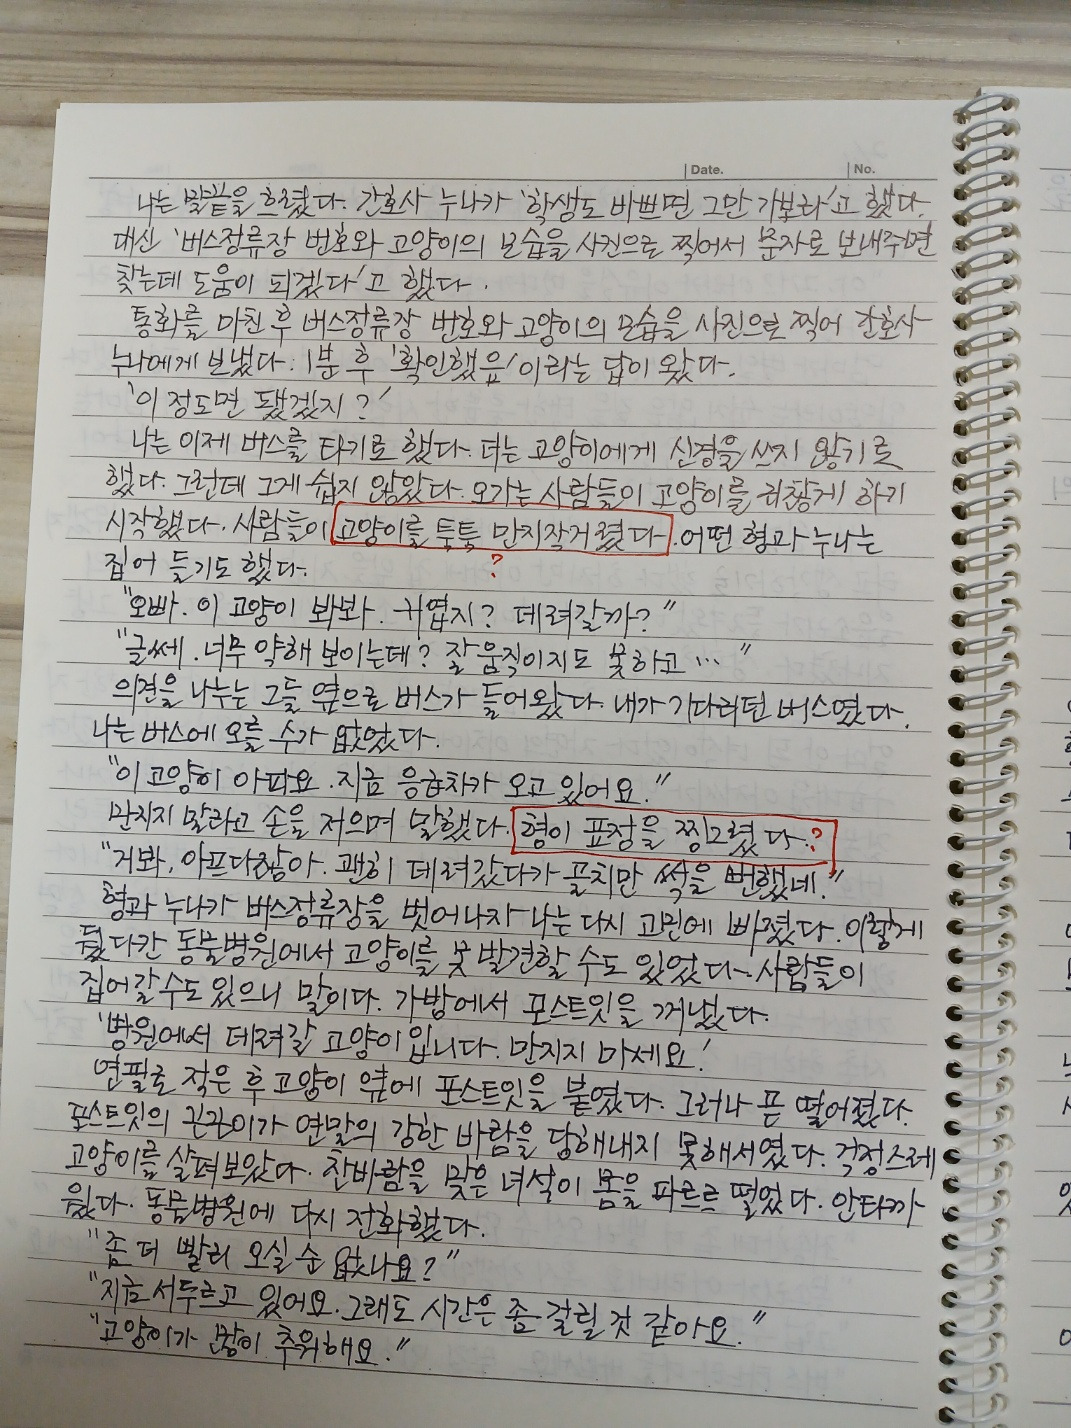 Date. No.
나는 말끝을 흐렸다. 간호사 누나가 '학생도 바쁘면 그만 가봐라'고 했다.
대신 '버스정류장 번호와 고양이의 모습을 사진으로 찍어서 문자로 보내주면
찾는데 도움이 되겠다'고 했다.
통화를 마친 후 버스정류장 번호와 고양이의 모습을 사진으로 찍어 간호사
누나에게 보냈다. 1분 후 '확인했음'이라는 답이 왔다.
'이 정도면 됐겠지?'
나는 이제 버스를 타기로 했다. 더는 고양이에게 신경을 쓰지 않기로
했다. 그런데 그게 쉽지 않았다. 오가는 사람들이 고양이를 귀찮게 하기
시작했다. 사람들이 고양이를 툭툭 만지작거렸다. 어떤 형과 누나는
?
집어 들기도 했다.
"오빠. 이 고양이 봐봐. 귀엽지? 데려갈까?"
"글쎄. 너무 약해 보이는데? 잘 움직이지도 못하고…"
의견을 나누는 그들 옆으로 버스가 들어왔다. 내가 기다리던 버스였다.
나는 버스에 오를 수가 없었다.
"이 고양이 아파요. 지금 응급차가 오고 있어요."
만지지 말라고 손을 저으며 말했다. 형이 표정을 찡그렸다.?
"거봐, 아프다잖아. 괜히 데려갔다가 골치만 썩을 뻔했네."
형과 누나가 버스정류장을 벗어나자 나는 다시 고민에 빠졌다. 이렇게
뒀다간 동물병원에서 고양이를 못 발견할 수도 있었다. 사람들이
집어갈 수도 있으니 말이다. 가방에서 포스트잇을 꺼냈다.
'병원에서 데려갈 고양이입니다. 만지지 마세요!'
연필로 적은 후 고양이 옆에 포스트잇을 붙였다. 그러나 곧 떨어졌다.
포스트잇의 끈끈이가 연말의 강한 바람을 당해내지 못해서였다. 걱정스레
고양이를 살펴보았다. 찬바람을 맞은 녀석이 몸을 파르르 떨었다. 안타까
웠다. 동물병원에 다시 전화했다.
"좀 더 빨리 오실 순 없나요?"
"지금 서두르고 있어요. 그래도 시간은 좀 걸릴 것 같아요."
"고양이가 많이 추워해요."